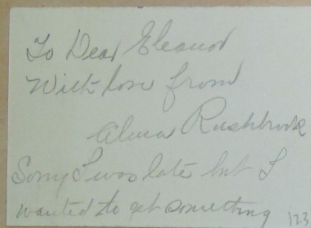 To Dear Eleanor
With love from
Alma Rushbrook
Sorry I was late but I
wanted to get something
123